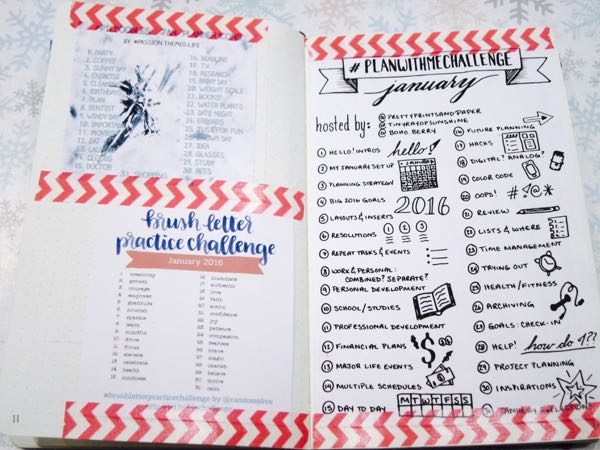 BY #PASSIONTHEMEDLIFE
1. PARTY
2. COFFEE
3. SUNNY DAY
4. EXERCISE
5. CLEANING
6. BIRTHDAY
7. PLAN
8. DENTIST
9. WINDY DAY
10. IMPORTANT
11. MOVIES
12. EAT
14. CLOUDS
15. DOCTOR
16. DEADLINE
17. T.V.
18. RESEARCH
19. RAINY DAY
20. WEIGHT SCALE
21. BOOKS
22. WATER PLANTS
23. DATE NIGHT
24. ERRANDS
25. JUST FOR FUN
26. SNOWY DAY
27. IDEA
28. GLASSES
29. STUDY
30. PETS
31. SHOPPING
brush letter
practice challenge
January 2016
1 creativity
2 growth
3 courage
4 empower
5 gratitude
6 nourish
7 sparkle
8 learn
9 mindful
10 drive
11 focus
12 elevate
13 celebrate
14 health
15 kindness
16 illuminate
17 authentic
18 love
19 faith
20 action
21 confidence
22 joy
23 patience
24 compassion
25 fearless
26 brave
27 magic
28 cherish
29 believe
30 thrive
31 calm
#brushletterpracticechallenge by @randomolive
11
#PLANWITHMECHALLENGE
january
hosted by:
@PRETTYPRINTSANDPAPER
@TINYRAYOFSUNSHINE
@BOHO.BERRY
1 HELLO! INTROS
hello!
2 MY JANUARY SET UP
3 PLANNING STRATEGY
4 BIG 2016 GOALS
2016
5 LAYOUTS & INSERTS
6 RESOLUTIONS
1 2 3
7 REPEAT TASKS & EVENTS
8 WORK & PERSONAL:
COMBINED? SEPARATE?
9 PERSONAL DEVELOPMENT
10 SCHOOL/STUDIES
11 PROFESSIONAL DEVELOPMENT
12 FINANCIAL PLANS
$
13 MAJOR LIFE EVENTS
14 MULTIPLE SCHEDULES
15 DAY TO DAY
M T W T F S S
16 FUTURE PLANNING
17 HACKS
18 DIGITAL? ANALOG?
19 COLOR CODE
20 OOPS! #%!@*
21 REVIEW
22 LISTS & WHERE
23 TIME MANAGEMENT
24 TRYING OUT
25 HEALTH/FITNESS
26 ARCHIVING
27 GOALS: CHECK-IN
28 HELP! how do I??
29 PROJECT PLANNING
30 INSPIRATIONS
31 JANUARY REFLECTIONS